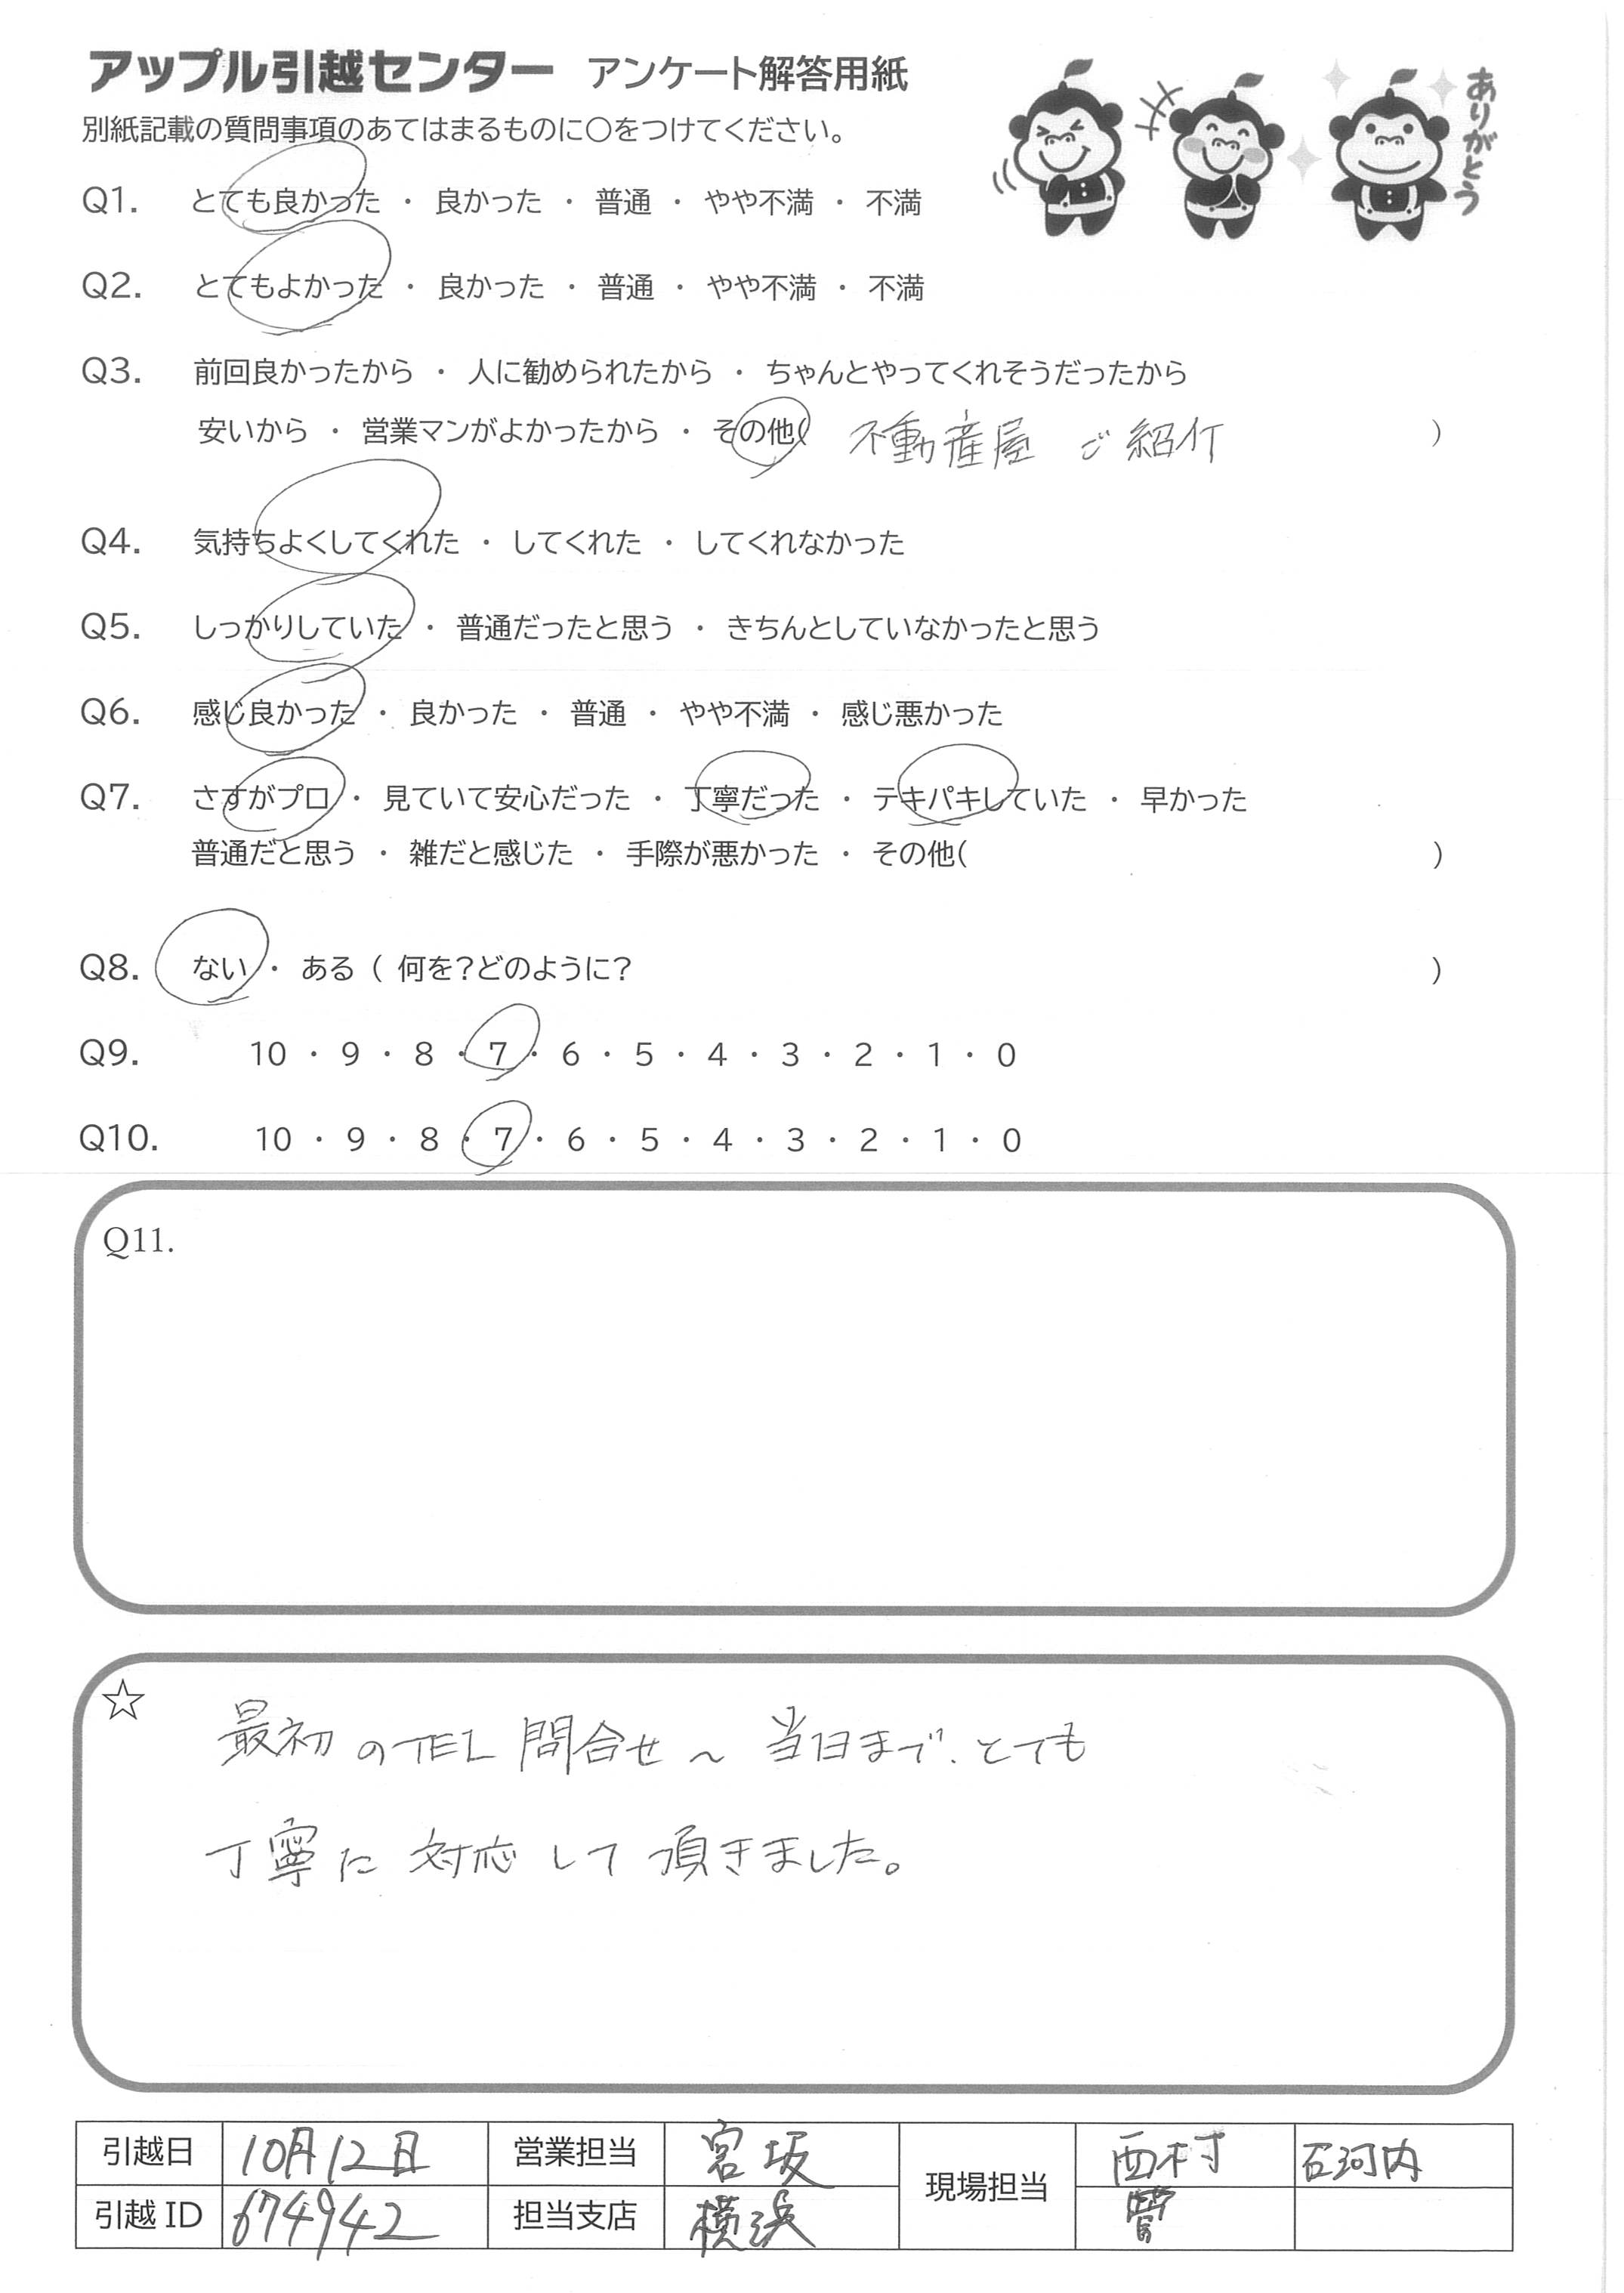 アップル引越センター アンケート解答用紙
別紙記載の質問事項のあてはまるものに○をつけてください。
ありがとう
Q1. とても良かった ・ 良かった ・ 普通 ・ やや不満 ・ 不満
Q2. とてもよかった ・ 良かった ・ 普通 ・ やや不満 ・ 不満
Q3. 前回良かったから ・ 人に勧められたから ・ ちゃんとやってくれそうだったから
安いから ・ 営業マンがよかったから ・ その他( 不動産屋 ご紹介 )
Q4. 気持ちよくしてくれた ・ してくれた ・ してくれなかった
Q5. しっかりしていた ・ 普通だったと思う ・ きちんとしていなかったと思う
Q6. 感じ良かった ・ 良かった ・ 普通 ・ やや不満 ・ 感じ悪かった
Q7. さすがプロ ・ 見ていて安心だった ・ 丁寧だった ・ テキパキしていた ・ 早かった
普通だと思う ・ 雑だと感じた ・ 手際が悪かった ・ その他( )
Q8. ない ・ ある ( 何を?どのように? )
Q9. 10 ・ 9 ・ 8 ・ 7 ・ 6 ・ 5 ・ 4 ・ 3 ・ 2 ・ 1 ・ 0
Q10. 10 ・ 9 ・ 8 ・ 7 ・ 6 ・ 5 ・ 4 ・ 3 ・ 2 ・ 1 ・ 0
Q11.
☆ 最初のTEL問合せ〜当日まで、とても
丁寧に対応して頂きました。
引越日 10月12日 営業担当 宮坂 現場担当 西村 石河内
引越ID 674942 担当支店 横浜